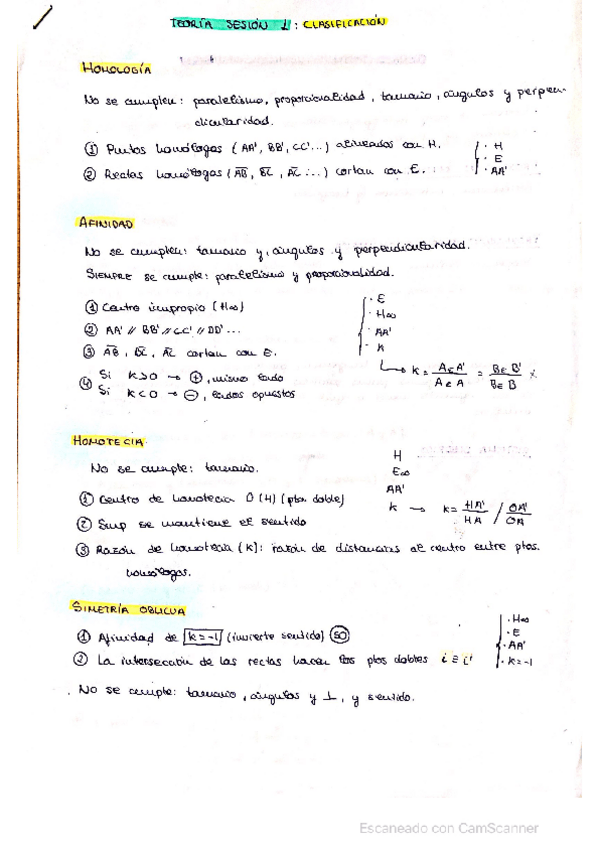 TEORÍA SESIÓN 1 : CLASIFICACIÓN
HOMOLOGÍA
No se cumplen: paralelismo, proporcionalidad, tamano, ángulos y perpen-
dicularidad.
① Puntos homólogos (AA', BB', CC'...) alineados con H.
② Rectas homólogas (AB, BC, AC ...) cortan con E.
· H
· E
· AA'
AFINIDAD
No se cumplen: tamano y, ángulos y perpendicularidad.
SIEMPRE se cumple: paralelismo y proporcionalidad.
① Centro impropio (H∞)
② AA' // BB' // CC' // DD' ...
③ AB, BC, AC cortan con E.
④ Si K>0 → ⊕, mismo lado
Si K<0 → ⊖, lados opuestos
· E
· H∞
· AA'
· K
K = AeA' / AeA = BeB' / BeB
HOMOTECIA
No se cumple: tamano.
① Centro de homotecia O (H) (pto. doble)
② Smp se mantiene el sentido
③ Razón de homotecia (K): razón de distancias al centro entre ptos.
homólogos.
H
E∞
AA'
K → K = HA' / HA / OA' / OA
SIMETRÍA OBLICUA
① Afinidad de K=-1 (invierte sentido) SO
② La interseccion de las rectas hacen los ptos dobles i ≡ i'
· No se cumple: tamano, ángulos y ⊥, y sentido.
· H∞
· E
· AA'
· K=-1
Escaneado con CamScanner